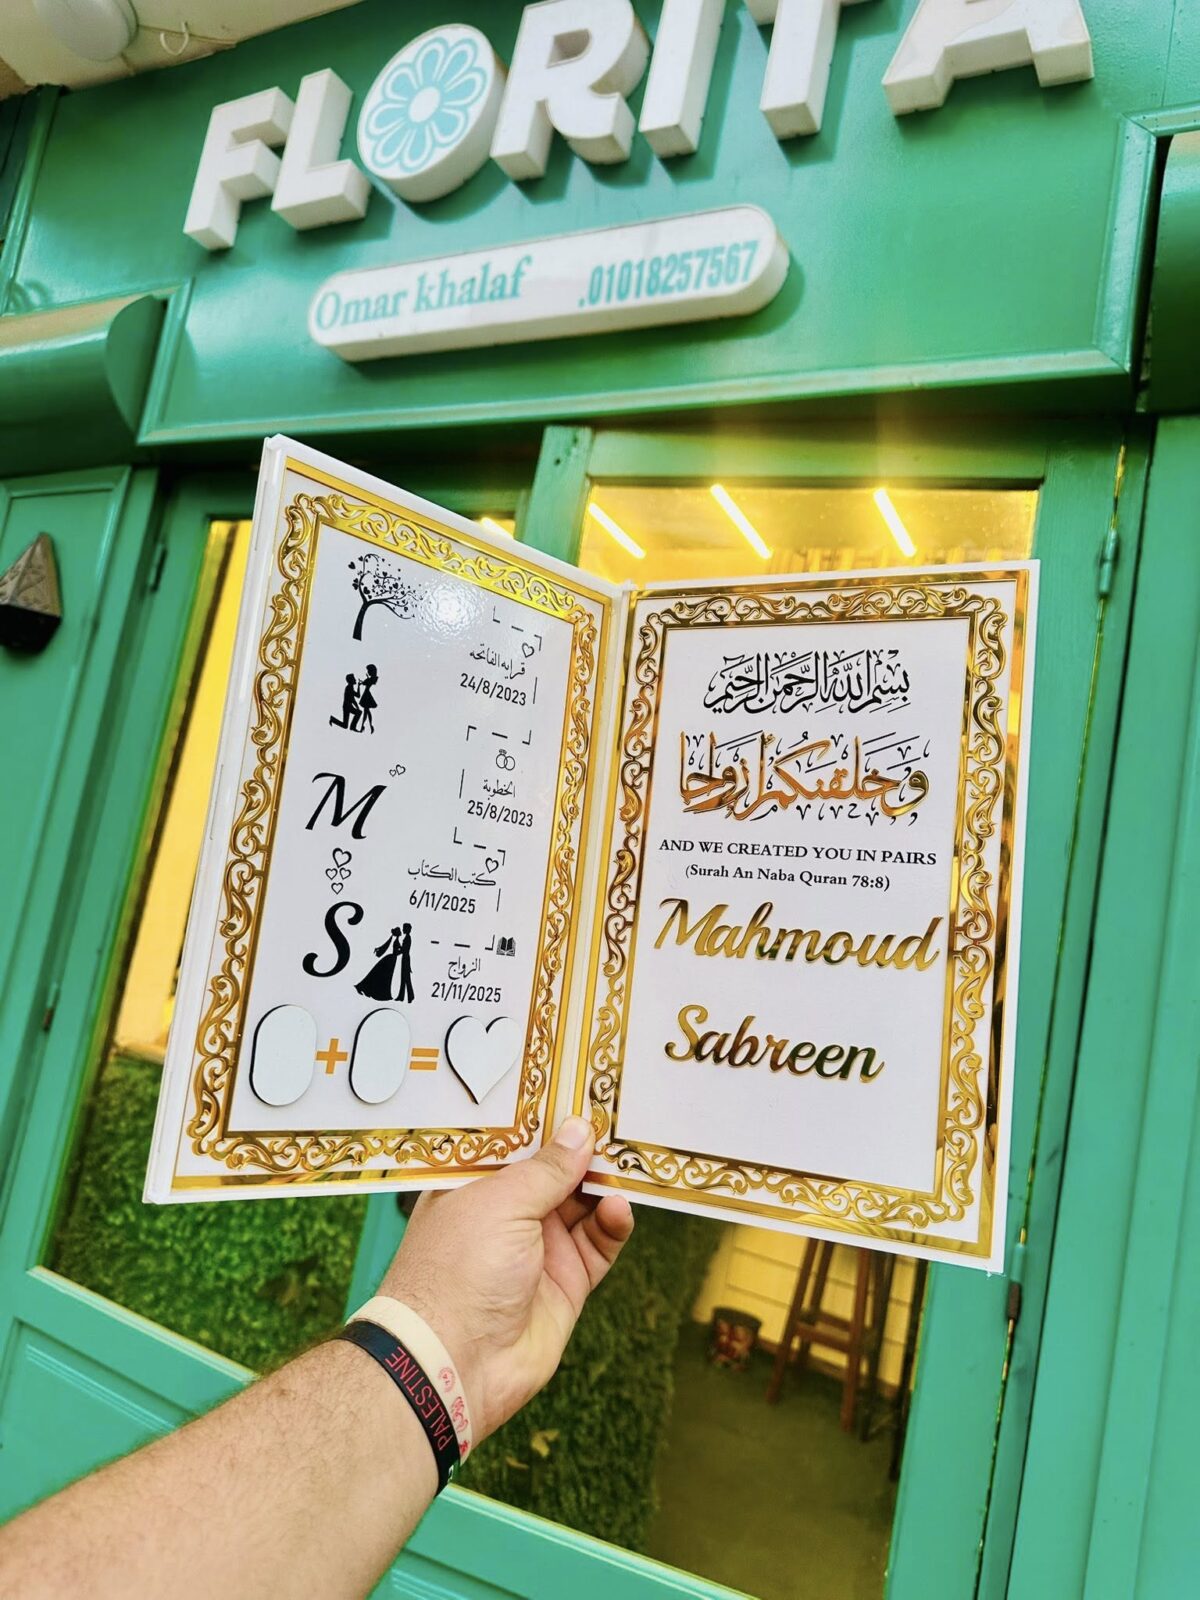 FLORITA
Omar khalaf .01018257567
قرايه الفاتحه
24/8/2023
الخطوبة
25/8/2023
M
كتب الكتاب
6/11/2025
S
الزواج
21/11/2025
+ =
بسم الله الرحمن الرحيم
وخلقنكم أزواجا
AND WE CREATED YOU IN PAIRS
(Surah An Naba Quran 78:8)
Mahmoud
Sabreen
PALESTINE